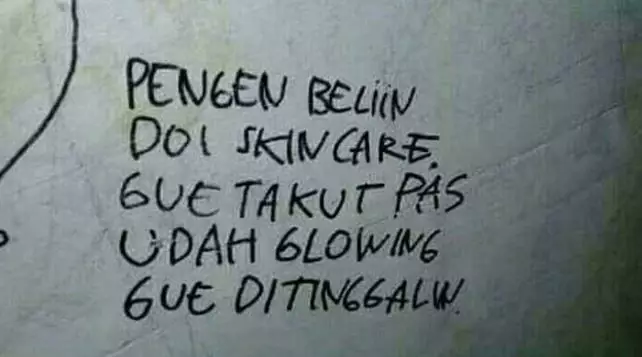 PENGEN BELIIN
DOI SKINCARE.
GUE TAKUT PAS
UDAH GLOWING
GUE DITINGGALIN.